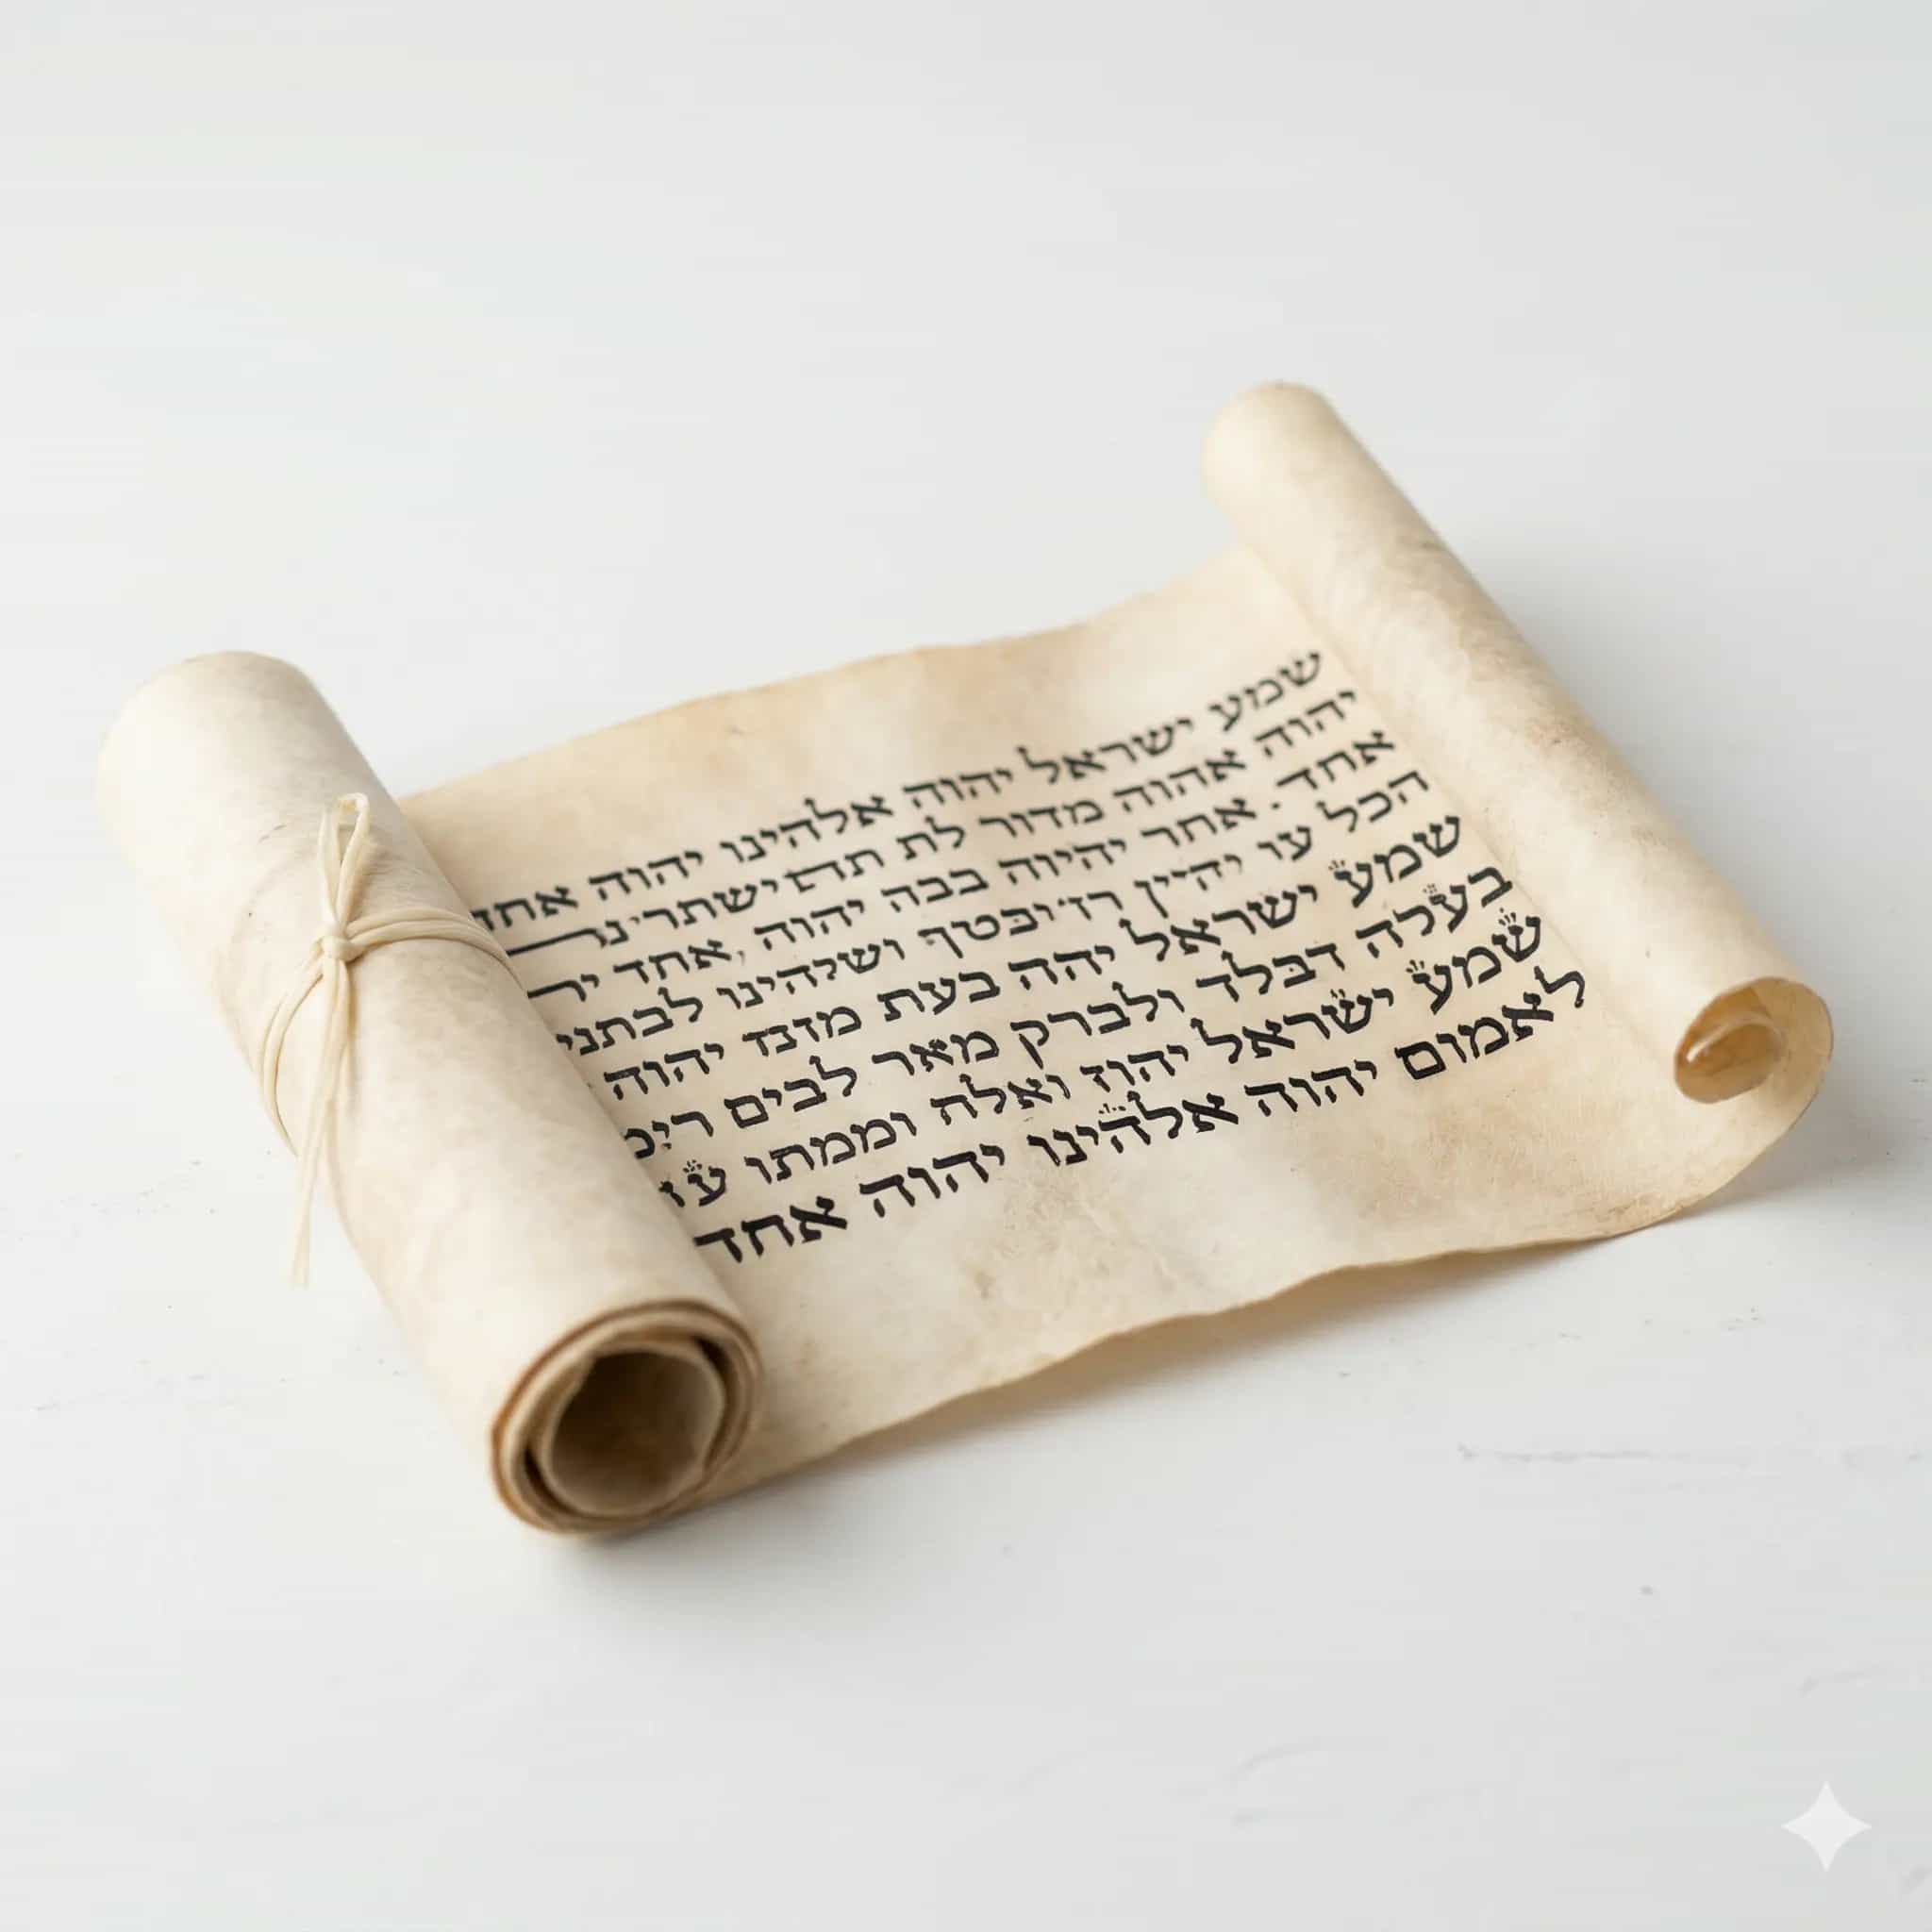 שמע ישראל יהוה אלהינו יהוה אחד
יהוה אהוה מדור לת
אחד. אחר יהיוה בבה יהוה, אחד
הכל עו ושיהינו לבתני
שמע ישראל יהה בעת יהוה
בעלה דבלד ולברק מאר לבים
שמע ישראל ואלח וממתו
לאמום יהוה אלהינו יהוה אחד